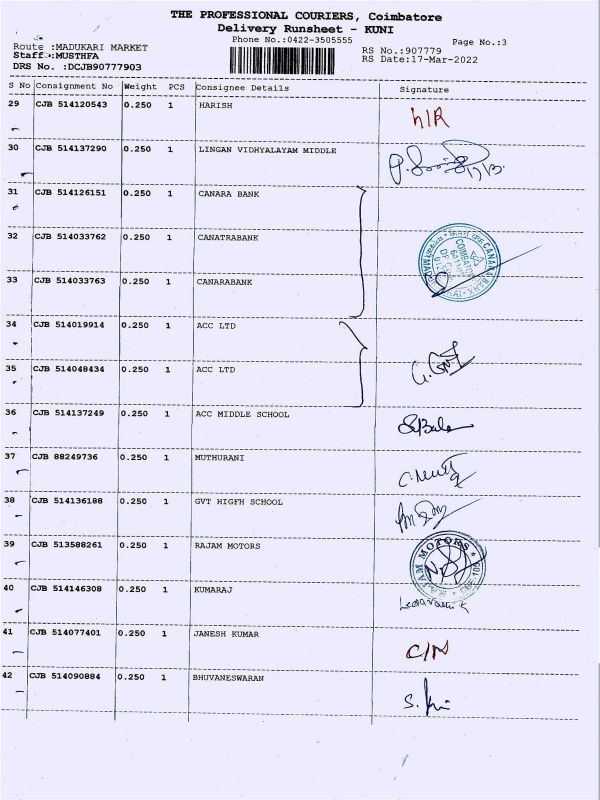 THE PROFESSIONAL COURIERS, Coimbatore
Delivery Runsheet - KUNI
Phone No.:0422-3505555
Page No.:3
Route :MADUKARI MARKET
RS No.:907779
Staff :MUSTHFA
RS Date:17-Mar-2022
DRS No. :DCJB90777903
S No Consignment No Weight PCS Consignee Details Signature
29 CJB 514120543 0.250 1 HARISH h/R
30 CJB 514137290 0.250 1 LINGAN VIDHYALAYAM MIDDLE
31 CJB 514126151 0.250 1 CANARA BANK
32 CJB 514033762 0.250 1 CANATRABANK
CANARA BANK
33 CJB 514033763 0.250 1 CANARABANK
34 CJB 514019914 0.250 1 ACC LTD
35 CJB 514048434 0.250 1 ACC LTD
36 CJB 514137249 0.250 1 ACC MIDDLE SCHOOL
37 CJB 88249736 0.250 1 MUTHURANI
38 CJB 514136188 0.250 1 GVT HIGFH SCHOOL
39 CJB 513588261 0.250 1 RAJAM MOTORS
RAJAM MOTORS
40 CJB 514146308 0.250 1 KUMARAJ
41 CJB 514077401 0.250 1 JANESH KUMAR C/N
42 CJB 514090884 0.250 1 BHUVANESWARAN